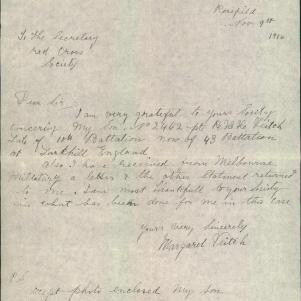 Rosefield
Nov 9th
1916
To The Secretary
Red Cross
Society
Dear Sir
I am very grateful to yours Society
concerning My Son. No 2462 pt
Late of 10th Battalion now of 43 Battalion
at Larkhill England
Also I have received from Melbourne
Military a letter & the other Statement returned
to me. I am most thankfull to your Society
in what has been done for me in this Case
Yours Very Sincerely
Margaret Veitch
P.S.
photo enclosed My Son